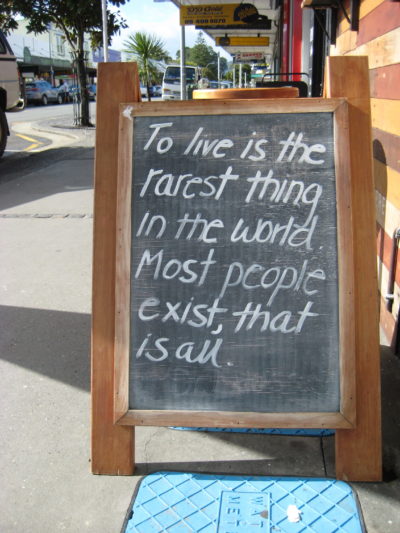 To live is the
rarest thing
in the world.
Most people
exist, that
is all.
WAT
MET